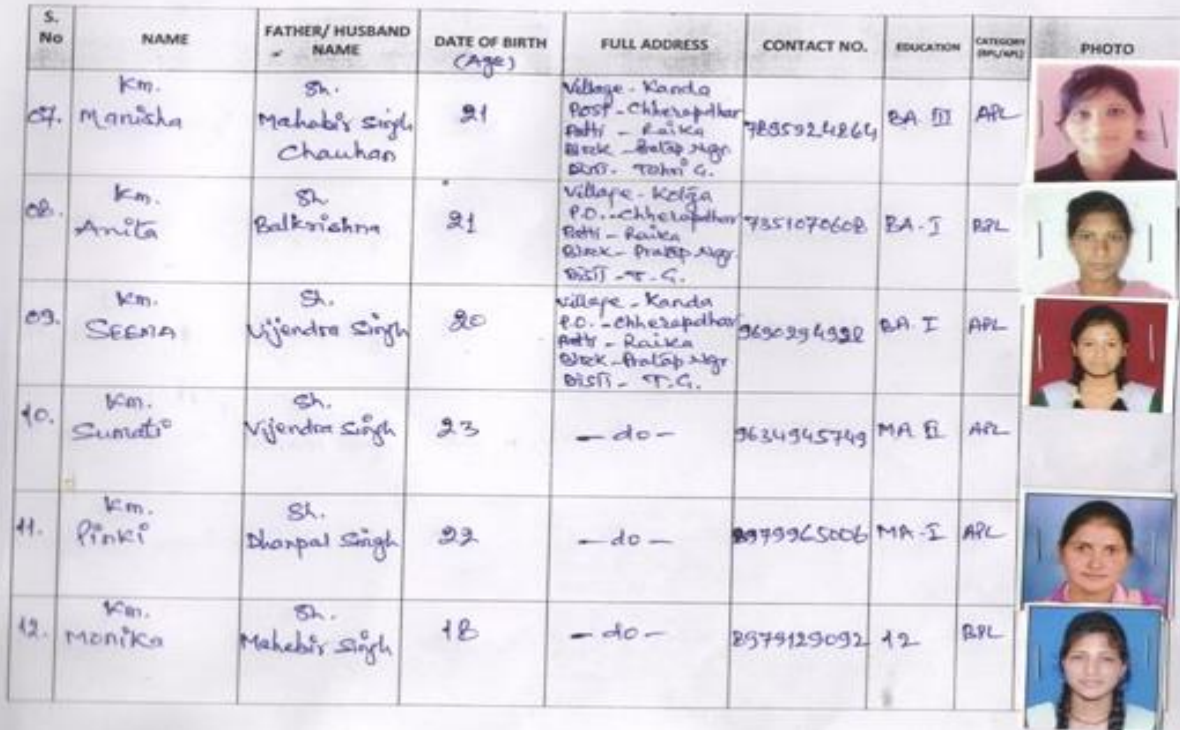 S. No NAME FATHER/ HUSBAND NAME DATE OF BIRTH (Age) FULL ADDRESS CONTACT NO. EDUCATION CATEGORY (BPL/APL) PHOTO
07. Km. Manisha Sh. Mahabir Singh Chauhan 21 Village - Kanda
Post - Chherapdhar
Patti - Raika
Block - Pratap Ngr
Distt. - Tehri G. 7895924864 BA III APL
08. Km. Anita Sh. Balkrishna 21 Village - Kolga
P.O. - Chherapdhar
Patti - Raika
Block - Pratap Ngr.
Distt - T. G. 7351070608 BA - I BPL
09. Km. SEEMA Sh. Vijendra Singh 20 Village - Kanda
P.O. - Chherapdhar
Patti - Raika
Block - Pratap Ngr
Distt - T. G. BA - I APL
10. Km. Sumati Sh. Vijendra Singh 23 - do - 9634945749 MA II APL
11. Km. Pinki Sh. Dharpal Singh 22 - do - 8979965006 MA - I APL
12. Km. Monika Sh. Mahabir Singh 18 - do - 8979129092 12 BPL